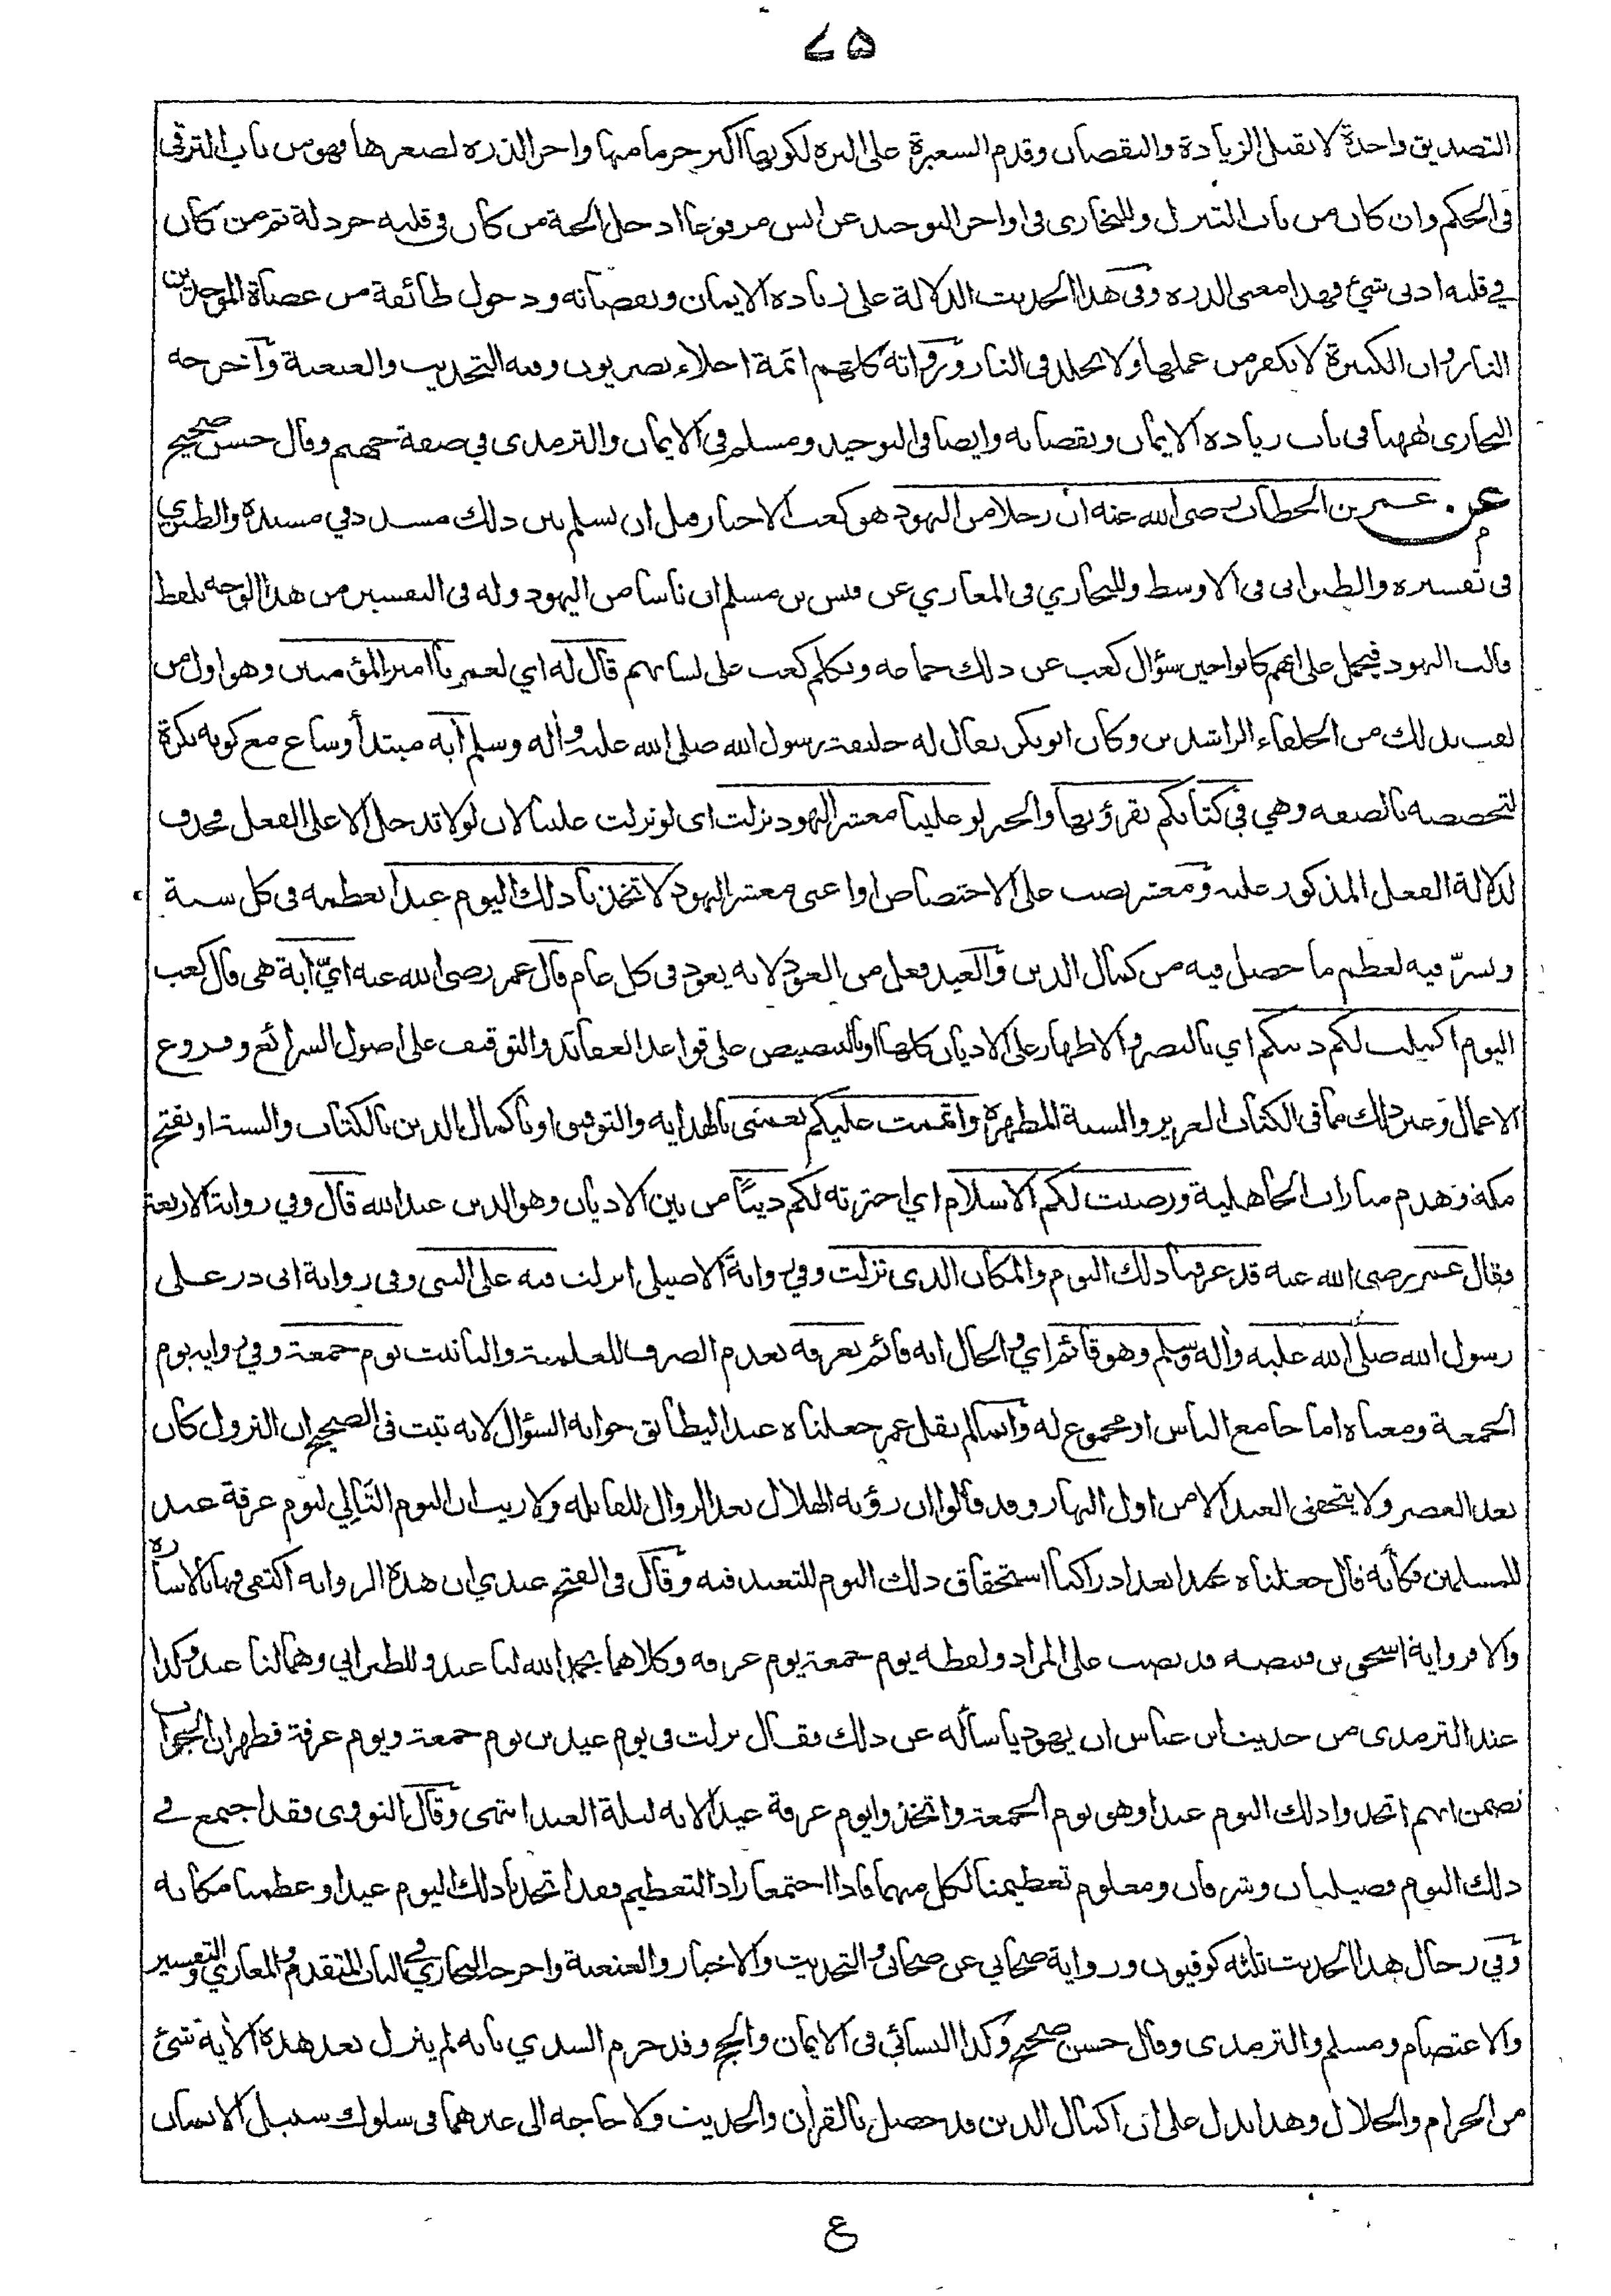 ٧٥
التصديق واحدة لا تقبل الزيادة والنقصان وقدم الشعيرة على البرة لكونها اكبر جرما منها واخر الذرة لصغرها فهو من باب الترقي
في الحكم وان كان من باب التنزل وللبخاري في اواخر التوحيد عن انس مرفوعا ادخل الجنة من كان في قلبه خردلة ثم من كان
في قلبه ادنى شئ فهذا معنى الذرة وفي هذا الحديث الدلالة على زيادة الايمان ونقصانه ودخول طائفة من عصاة الموحدين
النار وان الكبيرة لا يكفر من عملها ولا يخلد في النار ورواته كلهم ائمة اجلاء بصريون وفيه التحديث والعنعنة وأخرجه
البخاري ههنا في باب زيادة الايمان ونقصانه وايضا في التوحيد ومسلم في الايمان والترمذي في صفة جهنم وقال حسن صحيح
عن عمر بن الخطاب رضي الله عنه ان رجلا من اليهود هو كعب الاحبار قبل ان يسلم بين ذلك مسدد في مسنده والطبري
في تفسيره والطبراني في الاوسط وللبخاري في المغازي عن قيس بن مسلم ان ناسا من اليهود وله في التفسير من هذا الوجه بلفظ
قالت اليهود فيحمل على انهم كانوا حين سؤال كعب عن ذلك جماعة وتكلم كعب على لسانهم قال له اي لعمر يا امير المؤمنين وهو اول من
لقب بذلك من الخلفاء الراشدين وكان ابو بكر يقال له خليفة رسول الله صلى الله عليه وأله وسلم أية مبتدأ وساغ مع كونه نكرة
لتخصصه بالصفة وهي في كتابكم تقرؤنها والخبر لو علينا معشر اليهود نزلت اي لو نزلت علينا لان لو لا تدخل الا على الفعل فحذف
لدلالة الفعل المذكور عليه ومعشر نصب على الاختصاص او اعني معشر اليهود لاتخذنا ذلك اليوم عيدا نعظمه في كل سنة
ونسرّ فيه لعظم ما حصل فيه من كمال الدين والعيد فعل من العود لانه يعود في كل عام قال عمر رضي الله عنه ايّ أية هي قال كعب
اليوم اكملت لكم دينكم اي بالنصر والاظهار على الاديان كلها او بالتنصيص على قواعد العقائد والتوقيف على اصول الشرائع وفروع
الاعمال وغير ذلك مما في الكتاب العزيز والسنة المطهرة واتممت عليكم نعمتي بالهداية والتوفيق او باكمال الدين بالكتاب والسنة او بفتح
مكة وهدم منارات الجاهلية ورضيت لكم الاسلام اي اخترته لكم دينًا من بين الاديان وهو الدين عند الله قال وفي رواية الاربعة
فقال عمر رضي الله عنه قد عرفنا ذلك اليوم والمكان الذي نزلت وفي رواية الاصيلي انزلت فيه على النبي وفي رواية ابي ذر على
رسول الله صلى الله عليه وأله وسلم وهو قائم اي والحال انه قائم بعرفة بعدم الصرف للعلمية والتأنيث يوم جمعة وفي رواية يوم
الجمعة ومعناه اما جامع الناس او مجموع له وانما لم يقل عمر جعلناه عيدا ليطابق جوابه السؤال لانه ثبت في الصحيح ان النزول كان
بعد العصر ولا يتحقق العيد الا من اول النهار وقد قالوا ان رؤية الهلال بعد الزوال للقابلة ولا ريب ان اليوم التالي ليوم عرفة عيد
للمسلمين فكأنه قال جعلناه عيدا بعد ادراكنا استحقاق ذلك اليوم للتعبد فيه وقال في الفتح عندي ان هذه الرواية اكتفي فيها بالاشارة
والا فرواية اسحق بن قبيصة قد نصت على المراد ولفظه يوم جمعة يوم عرفة وكلاهما بحمد الله لنا عيد وللطبراني وهما لنا عيد وكذا
عند الترمذي من حديث ابن عباس ان يهوديا سأله عن ذلك فقال نزلت في يوم عيدين يوم جمعة ويوم عرفة فظهر ان الجواب
تضمن انهم اتخذوا ذلك اليوم عيدا وهو يوم الجمعة واتخذوا يوم عرفة عيدا لانه ليلة العيد انتهى وقال النووي فقد اجتمع في
ذلك اليوم فضيلتان وشرفان ومعلوم تعظيمنا لكل منهما فاذا اجتمعا زاد التعظيم فقد اتخذنا ذلك اليوم عيدا وعظمنا مكانه
وفي رجال هذا الحديث ثلثة كوفيون ورواية صحابي عن صحابي والتحديث والاخبار والعنعنة واخرجه البخاري في الباب المتقدم والمغازي والتفسير
والاعتصام ومسلم والترمذي وقال حسن صحيح وكذا النسائي في الايمان والحج وقد جزم السدي بانه لم ينزل بعد هذه الأية شئ
من الحرام والحلال وهذا يدل على ان اكمال الدين قد حصل بالقرأن والحديث ولا حاجة الى غيرهما في سلوك سبيل الانسان
ع